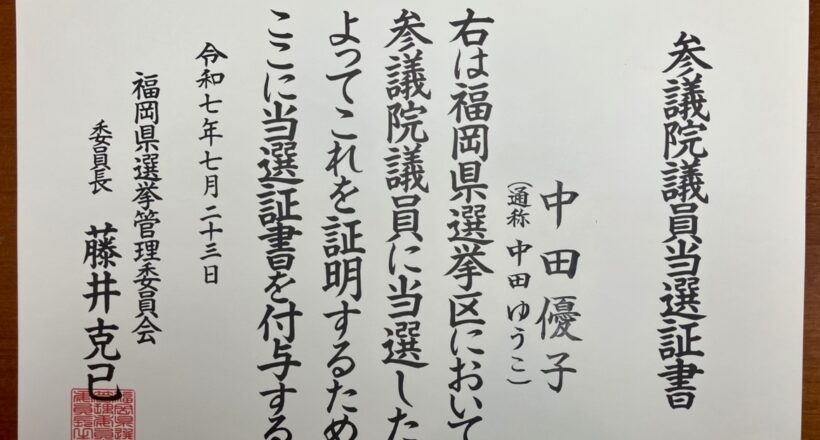 参議院議員当選証書
中田優子
（通称 中田ゆうこ）
右は福岡県選挙区において
参議院議員に当選した
よってこれを証明するため
ここに当選証書を付与する
令和七年七月二十三日
福岡県選挙管理委員会
委員長 藤井克已